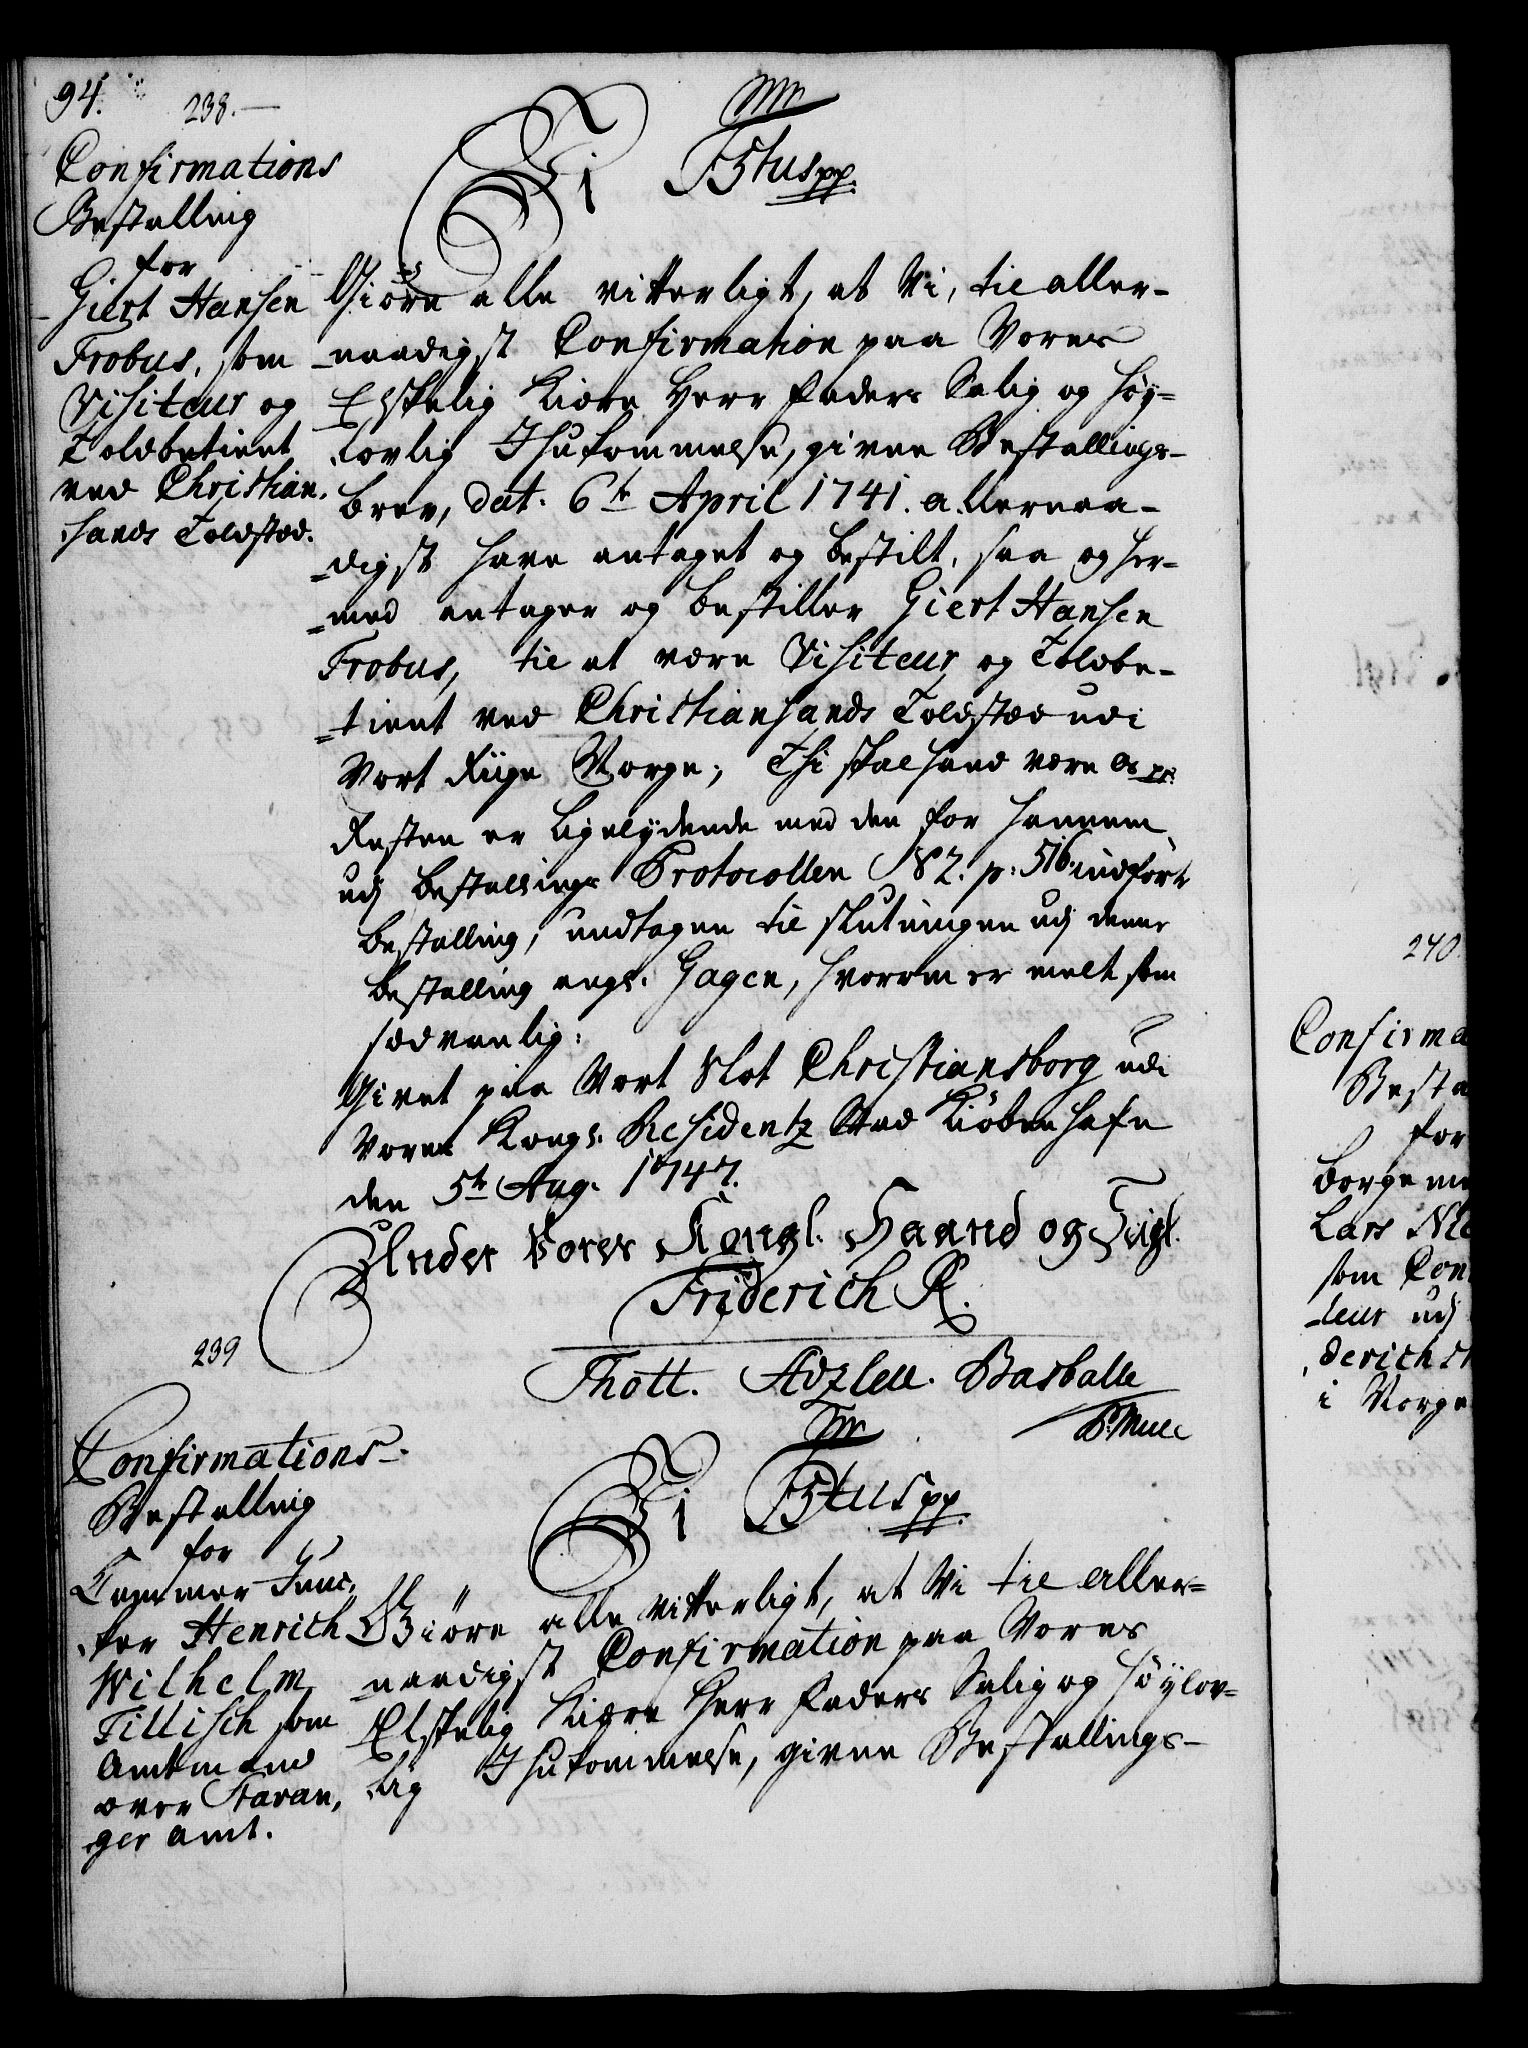 94.
238.
Confirmations
Bestalling
for
Giert Hansen
Frobus, som
Visiteur og
Toldbetient
ved Christian-
sands Toldsted.
Vi F5tus pp.
Giöre alle vitterligt, at Vi, til aller-
naadigst Confirmation paa Vores
Elskelig Kiære Herr Faders Salig og Høy-
lovlig Ihukommelse, givne Bestallings-
brev, dat. 6te April 1741. allernaa-
digst have antaget og bestilt, saa og her-
med antager og bestiller Giert Hansen
Frobus, til at være Visiteur og Toldbe-
tient ved Christiansands Toldsted udi
Vort Riige Norge; Thi skal hand være Os pp.
Resten er ligelydende med den for hannem
udj Bestallings Protocollen No 2. p: 516. indført
Bestalling, undtagen til slutningen udj denne
Bestalling ang: Gagen, hvorom er melt som
sædvanlig:
Givet paa Vort Slot Christiansborg udi
Vores Kongl: Residentz Stad Kiöbenhafn
den 5te Aug: 1747.
Under Vores Kongl. Haand og Sigl.
Friderich R.
Thott. Adzleu. Barballe
P. Mule
239
Confirmations-
Bestalling
for
Cammer Junc-
ker Henrich
Wilhelm
Tillisch som
Amtmand
over Stavan-
ger Amt.
Vi F5tus pp.
Giöre alle vitterligt, at Vi til aller-
naadigst Confirmation paa Vores
Elskelig Kiære Herr Faders Salig og Höylov-
lig Ihukommelse, givne Bestallings-
240.
Confirma
Besta
for
Borgeme
Lars Nie
som Con
leur udj
derichs
i Norge